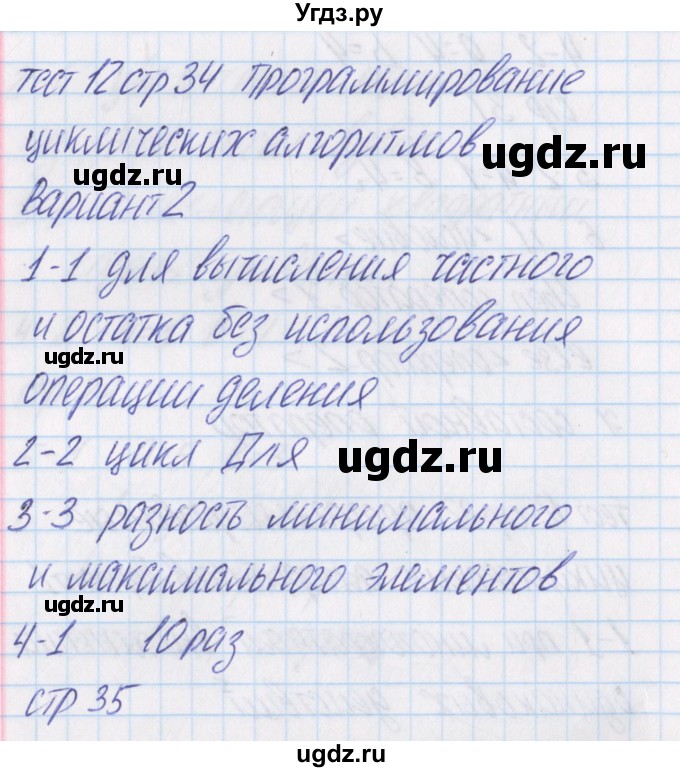 Угдз.ру
тест 12 стр 34 Программирование
циклических алгоритмов
ugdz.ru
ugdz.ru
Вариант 2
1-1 для вычисления частного
и остатка без использования
ugdz.ru
операции деления
2-2 цикл Для
ugdz.ru
3-3 разность минимального
и максимального элементов
ugdz.ru
4-1 10 раз
стр 35
ugdz.ru